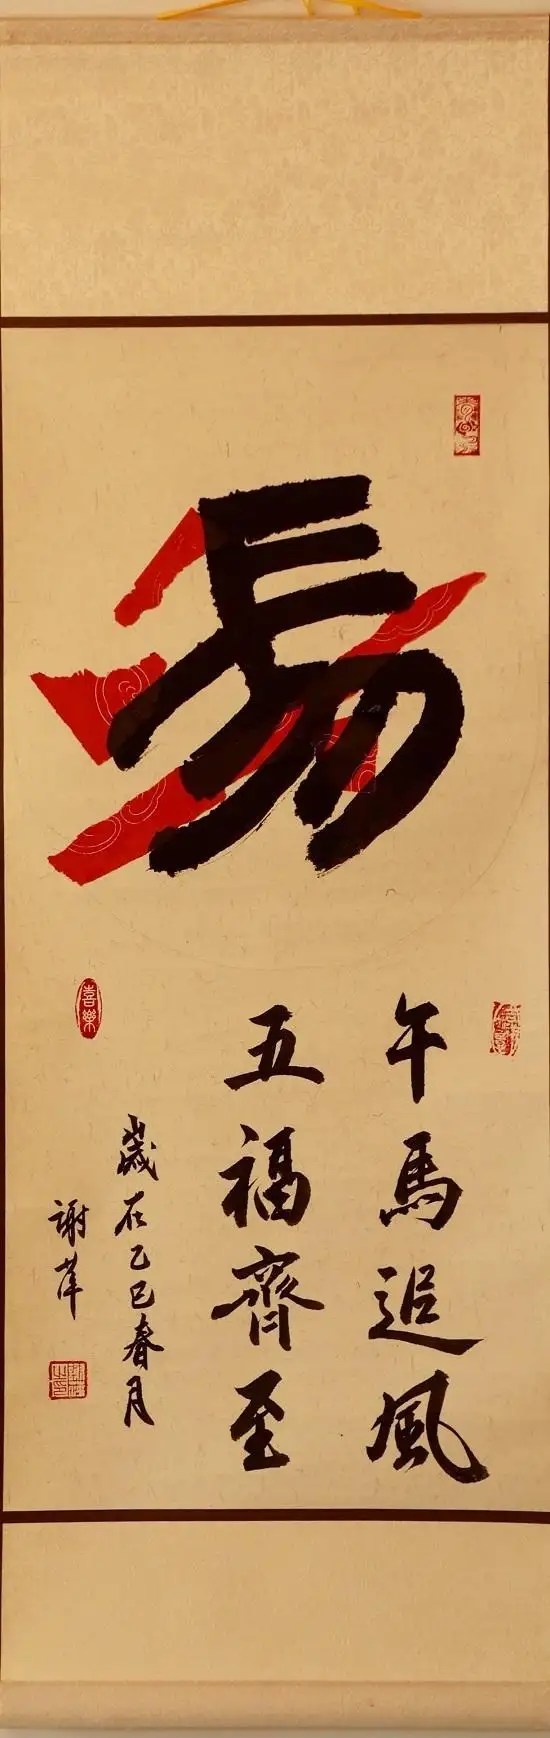 馬
午馬追風
五福齊至
喜樂
歲在乙巳春月
謝